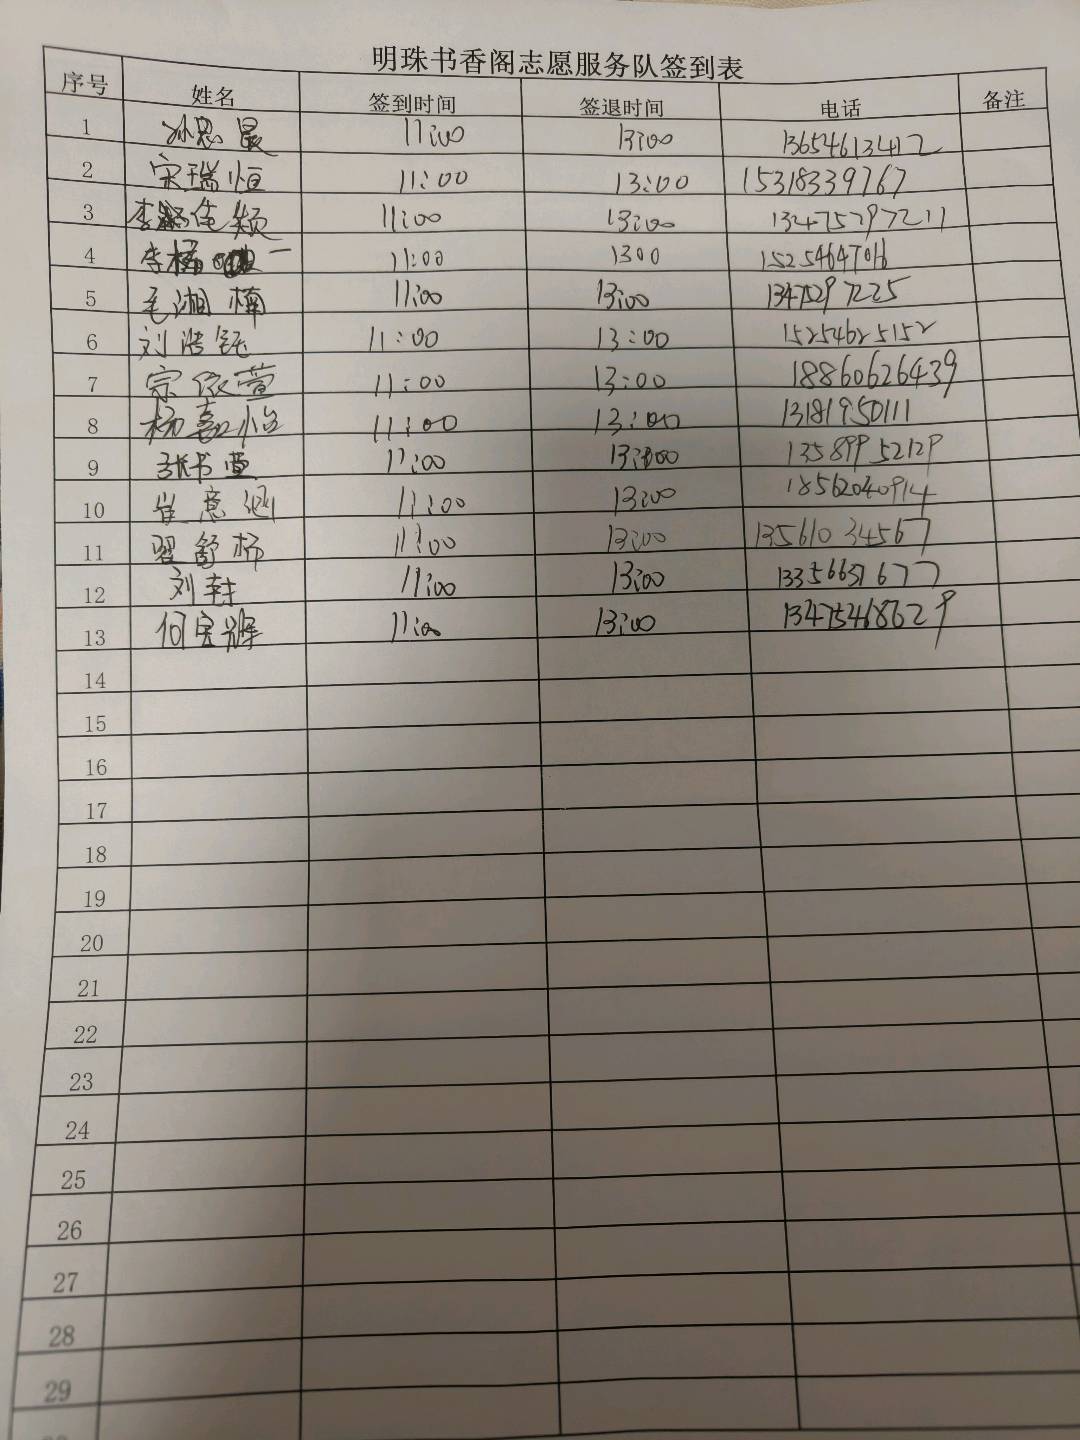 明珠书香阁志愿服务队签到表
序号 姓名 签到时间 签退时间 电话 备注
1 孙思晨 11:00 13:00 13654613412
2 宋瑞恒 11:00 13:00 15318339767
3 李佳频 11:00 13:00 13475797211
4 李杨一 11:00 1300 15254647016
5 毛湘楠 11:00 13:00 13475297225
6 刘浩钰 11:00 13:00 15254625152
7 宗依萱 11:00 13:00 18860626439
8 杨嘉怡 11:00 13:00 13181950111
9 张书萱 11:00 13:00 13589952129
10 崔意涵 11:00 13:00 18562040914
11 翟舒杨 11:00 13:00 13561034567
12 刘轩 11:00 13:00 13356631677
13 何宝 11:00 13:00 13475468629
14
15
16
17
18
19
20
21
22
23
24
25
26
27
28
29